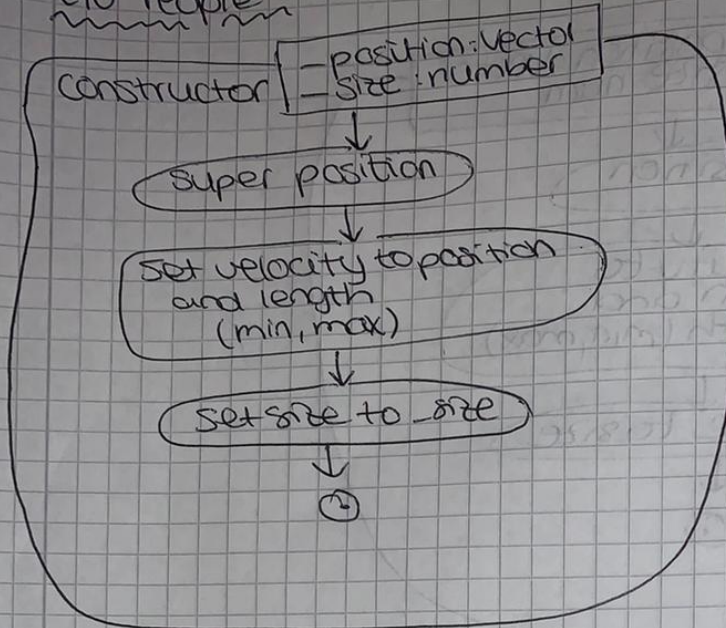 people
constructor
_position: Vector
_size: number
super position
set velocity to position
and length
(min, max)
set size to _size